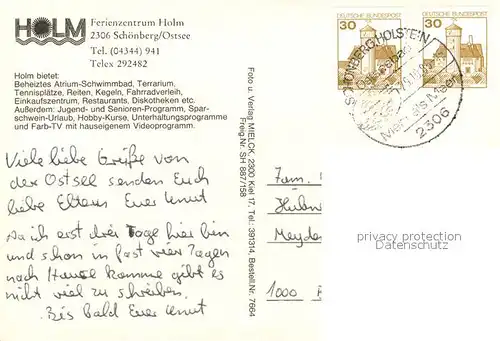 HOLM
Ferienzentrum Holm
2306 Schönberg/Ostsee
Tel. (04344) 941
Telex 292482
Holm bietet:
Beheiztes Atrium-Schwimmbad, Terrarium,
Tennisplätze, Reiten, Kegeln, Fahrradverleih,
Einkaufszentrum, Restaurants, Diskotheken etc.
Außerdem: Jugend- und Senioren-Programm, Spar-
schwein-Urlaub, Hobby-Kurse, Unterhaltungsprogramme
und Farb-TV mit hauseigenem Videoprogramm.
Viele liebe Grüße von
der Ostsee senden Euch
liebe Eltern Euer Knut
Da ich erst drei Tage hier bin
und schon in fast vier Tagen
nach Hause komme gibt es
nicht viel zu schreiben.
Bis bald Euer Knut
Foto u. Verlag MIELCK, 2300 Kiel 17, Tel.: 391314, Bestell.Nr. 7664
Freig.Nr. SH 887/158
30 DEUTSCHE BUNDESPOST
DEUTSCHE BUNDESPOST 30
SCHÖNBERG, HOLSTEIN
Ostseebad
Mehr als Meer
2306
Fam.
Meyde
1000
privacy protection
Datenschutz